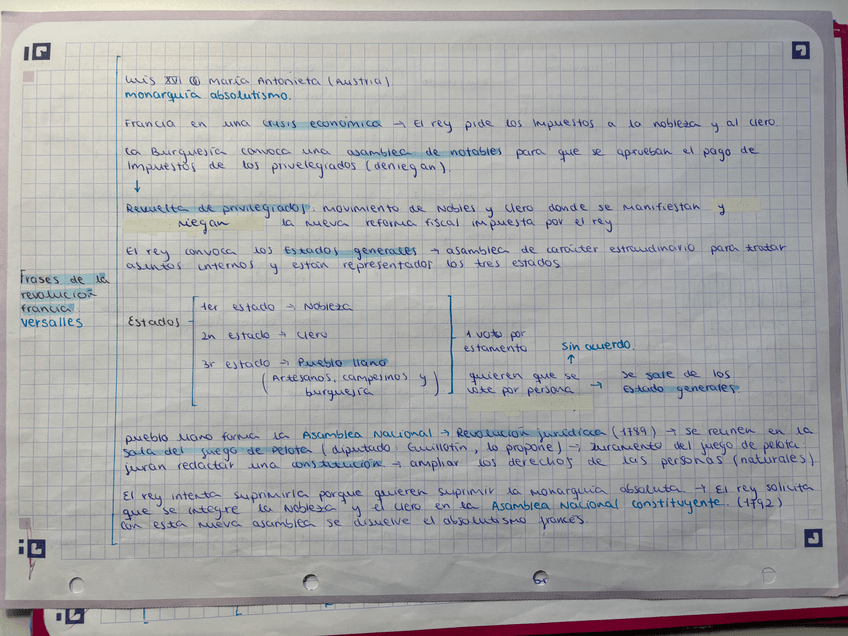 Luis XVI @ María Antonieta (Austria)
monarquía absolutismo.
Francia en una crisis económica → El rey pide los impuestos a la nobleza y al clero
La Burguesía convoca una asamblea de notables para que se aprueban el pago de
impuestos de los privelegiados (deniegan).
↓
Revuelta de privilegiados: movimiento de Nobles y clero donde se manifiestan y
niegan la nueva reforma fiscal impuesta por el rey
El rey convoca los Estados generales → asamblea de carácter estraudinario para tratar
asuntos internos y están representados los tres estados
Frases de la
revolución
francia
versalles
Estados
1er estado → Nobleza
2n estado → clero
3r estado → Pueblo llano
(Artesanos, campesinos y
burguesía)
1 voto por
estamento
sin acuerdo.
↑
quieren que se
vote por persona → se sale de los
Estado generales.
pueblo llano forma la Asamblea Nacional → Revolución jurídica (1789) → se reúnen en la
sala del juego de Pelota (diputado: Guillotin, lo propone) → Juramento del juego de pelota
juran redactar una constitución → ampliar los derechos de las personas (naturales)
El rey intenta suprimirla porque quieren suprimir la monarquía absoluta → El rey solicita
que se integre la Nobleza y el clero en la Asamblea Nacional constituyente. (1792)
con esta nueva asamblea se disuelve el absolutismo francés.